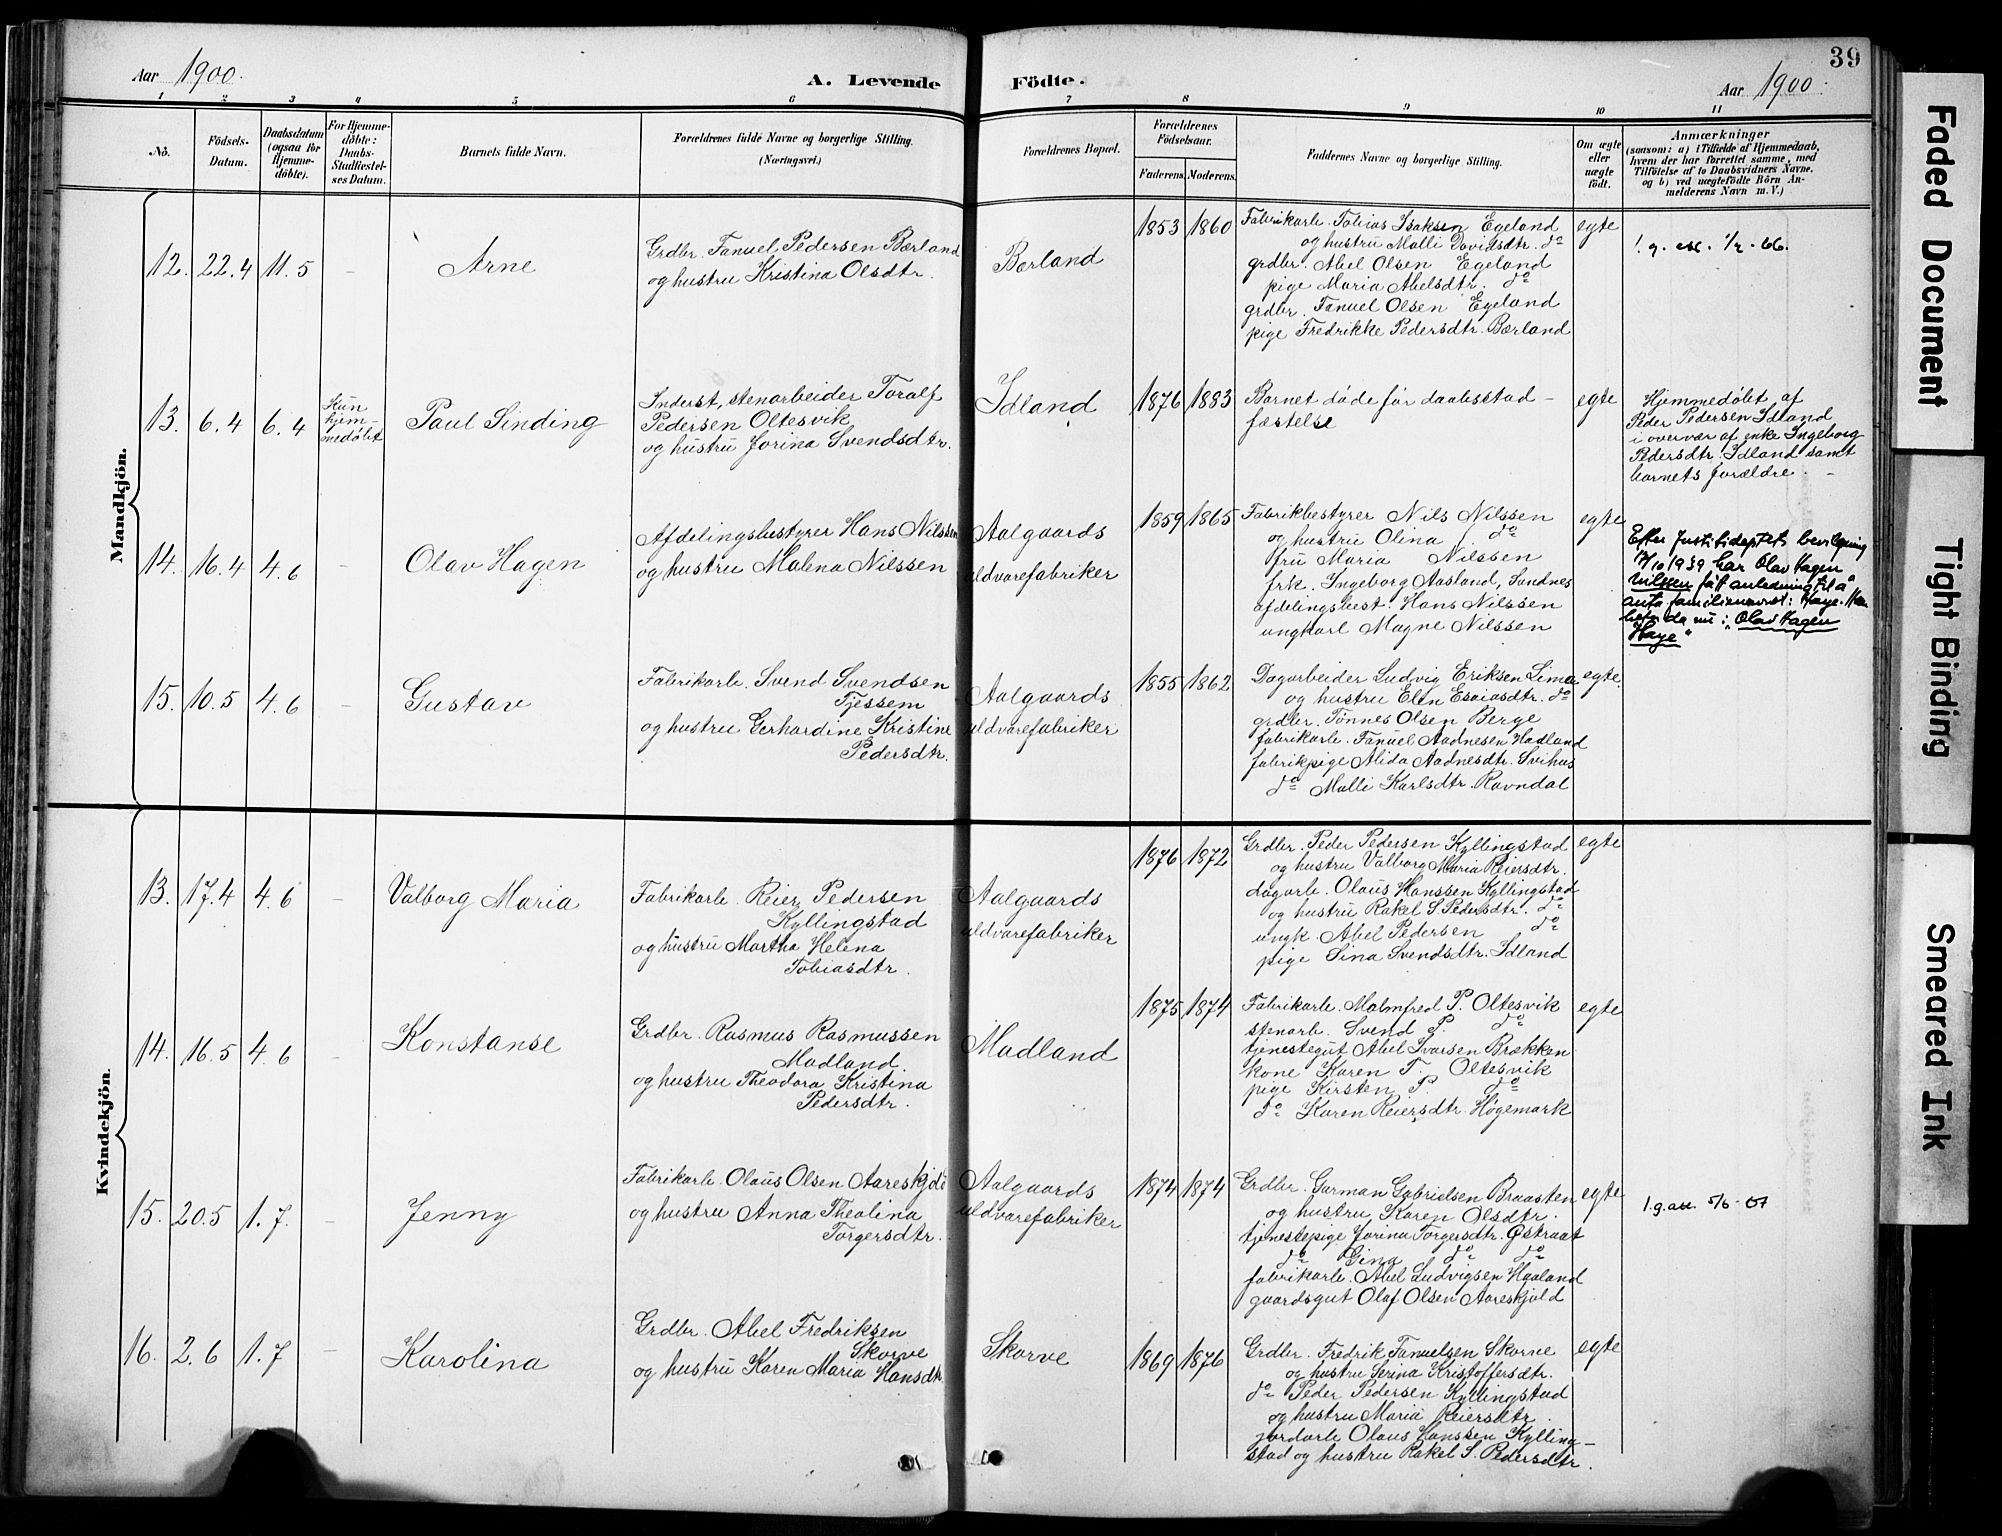 39
Aar 1900.
A. Levende Födte.
Aar 1900.
1 2 3 4 5 6 7 8 9 10 11
No.
Födsels-
Datum.
Daabsdatum
(ogsaa for
Hjemme-
döbte).
For Hjemme-
döbte:
Daabs-
Stadfæstel-
ses Datum.
Barnets fulde Navn.
Forældrenes fulde Navne og borgerlige Stilling.
(Næringsvei.)
Forældrenes Bopæl.
Forældrenes
Födselsaar.
Faderens. Moderens.
Faddernes Navne og borgerlige Stilling.
Om ægte
eller
uægte
födt.
Anmærkninger
(saasom: a) i Tilfælde af Hjemmedaab,
hvem der har forrettet samme, med
Tilföielse af to Daabsvidners Navne,
og b) ved uægtefödte Börn An-
melderens Navn m. V.)
Mandkjön.
12. 22.4 11.5 - Arne
Grdbr. Fanuel Pedersen Bærland
og hustru Kristina Olsdtr.
Bærland
1853 1860
Fabrikarb. Tobias Isaksen Egeland
og hustru Malli Davidsdtr. do
grdbr. Abel Olsen Egeland
pige Maria Abelsdtr. do
grdbr. Fanuel Olsen Egeland
pige Fredrikke Pedersdtr. Bærland
egte
1. g. att. 1/2-66.
13. 6.4 6.4
Kun
hjem-
medøbt
Paul Sinding
Inderst, stenarbeider Toralf
Pedersen Oltesvik
og hustru Jorina Svendsdtr.
Idland
1876 1883
Barnet døde før daabsstad-
fæstelse
egte
Hjemmedøbt af
Peder Pedersen Idland
i overvær af enke Ingeborg
Pedersdtr. Idland samt
barnets forældre.
14. 16.4 4.6 - Olav Hagen
Afdelingsbestyrer Hans Nilssen
og hustru Malena Nilssen
Aalgaards
uldvarefabriker
1859 1865
Fabrikbestyrer Nils Nilssen
og hustru Olina do
fru Maria Nilssen
frk. Ingeborg Aasland, Sandnes
afdelingsbest. Hans Nilssen
ungkarl Magne Nilssen
egte
Efter Justitideptets bevilgning
17/10 1939 har Olav Hagen
Nilssen fåt anledning til å
anta familienavnet: Haye. Han
heter da nu: "Olav Hagen
Haye"
15. 10.5 4.6 - Gustav
Fabrikarb. Svend Svendsen
Tjessem
og hustru Gerhardine Kristine
Pedersdtr.
Aalgaards
uldvarefabriker
1855 1862
Dagarbeider Ludvig Eriksen Lima
og hustru Elen Esaiasdtr. do
grdbr. Tønnes Olsen Berge
fabrikarb. Fanuel Aadnesen Hadland
fabrikpige Alida Aadnesdtr. Svihus
do Malli Karlsdtr. Ravndal
egte.
Kvindekjön.
13. 17.4 4.6 - Valborg Maria
Fabrikarb. Reier Pedersen
Kyllingstad
og hustru Martha Helena
Tobiasdtr.
Aalgaards
uldvarefabriker
1876 1872
Grdbr. Peder Pedersen Kyllingstad
og hustru Valborg Maria Reiersdtr.
dagarb. Olaus Hanssen Kyllingstad
og hustru Rakel S. Pedersdtr. do
ungk Abel Pedersen do
pige Sina Svendsdtr. Idland
egte
14. 16.5 4.6 - Konstanse
Grdbr. Rasmus Rasmussen
Madland.
og hustru Theodora Kristina
Pedersdtr.
Madland
1875 1874
Fabrikarb. Malmfred P. Oltesvik
stenarb. Svend P. do
tjenestegut Abel Ivarsen Brækken
kone Karen T. Oltesvik
pige Kirsten P. do
do Karen Reiersdtr. Høgemark
egte
15. 20.5 1.7. - Jenny
Fabrikarb. Olaus Olsen Aareskjold
og hustru Anna Theolina
Torgersdtr.
Aalgaards
uldvarefabriker
1874 1874
Grdbr. Garman Gabrielsen Braasten
og hustru Karen Olsdtr.
tjenestepige Jorina Torgersdtr. Østraat
do Gina do do
fabrikarb. Abel Ludvigsen Haaland
gaardsgut Olaf Olsen Aareskjold
egte
1.g.att. 5/6-67
16. 2.6 1.7 - Karolina
Grdbr. Abel Fredriksen
Skorve
og hustru Karen Maria Hansdtr.
Skorve
1869 1876
Grdbr. Fredrik Fanuelsen Skorve
og hustru Serina Kristoffersdtr.
do Peder Pedersen Kyllingstad
og hustru Maria Reiersdtr.
jordarb. Olaus Hanssen Kylling-
stad og hustru Rakel S. Pedersdtr.
egte
Faded Document
Tight Binding
Smeared Ink